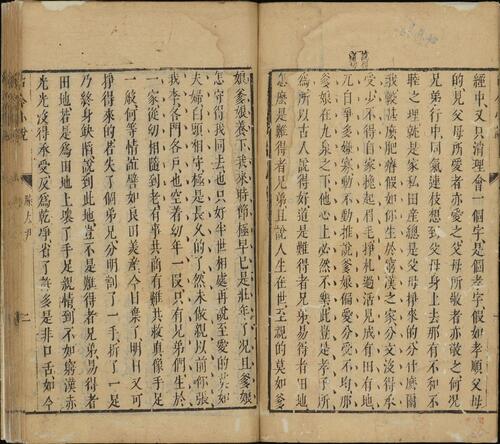 經中又只消理會一個字是個孝字假如孝順父母
的見父母所愛者亦愛之父母所敬者亦敬之何況
兄弟行中同氣連枝想到父母身上去那有不和不
睦之理就是家私田產總是父母掙來的分什麼爾
我較甚麼肥瘠假如你生於窮漢之家分文沒得承
受少不得自家挽起眉毛掙扎過活見成有田有地
兀自爭多嫌寡動不動推說爹娘偏愛分受不均那
爹娘在九泉之下他心上必然不樂此豈是孝子所
為所以古人說得好道是難得者兄弟易得者田地
怎麼是難得者兄弟且說人生在世至親的莫如爹
娘爹娘養下我來時節極早已是壯年了況且爹娘
怎守得我同去也只好半世相處再說至愛的莫如
夫婦白頭相守極是長久的了然未做親以前你張
我李各門各戶也空着幼年一段只有兄弟們生於
一家從幼相隨到老有事共商有難共救真像手足
一般何等情誼譬如良田美產今日棄了明日又可
掙得來的若失了個弟兄分明割了一手折了一足
乃終身缺陷說到此地豈不是難得者兄弟易得者
田地若是為田地上壞了手足親情到不如窮漢赤
光光沒得承受反為乾淨省了許多是非口舌如今
古今小說
滕大尹
二